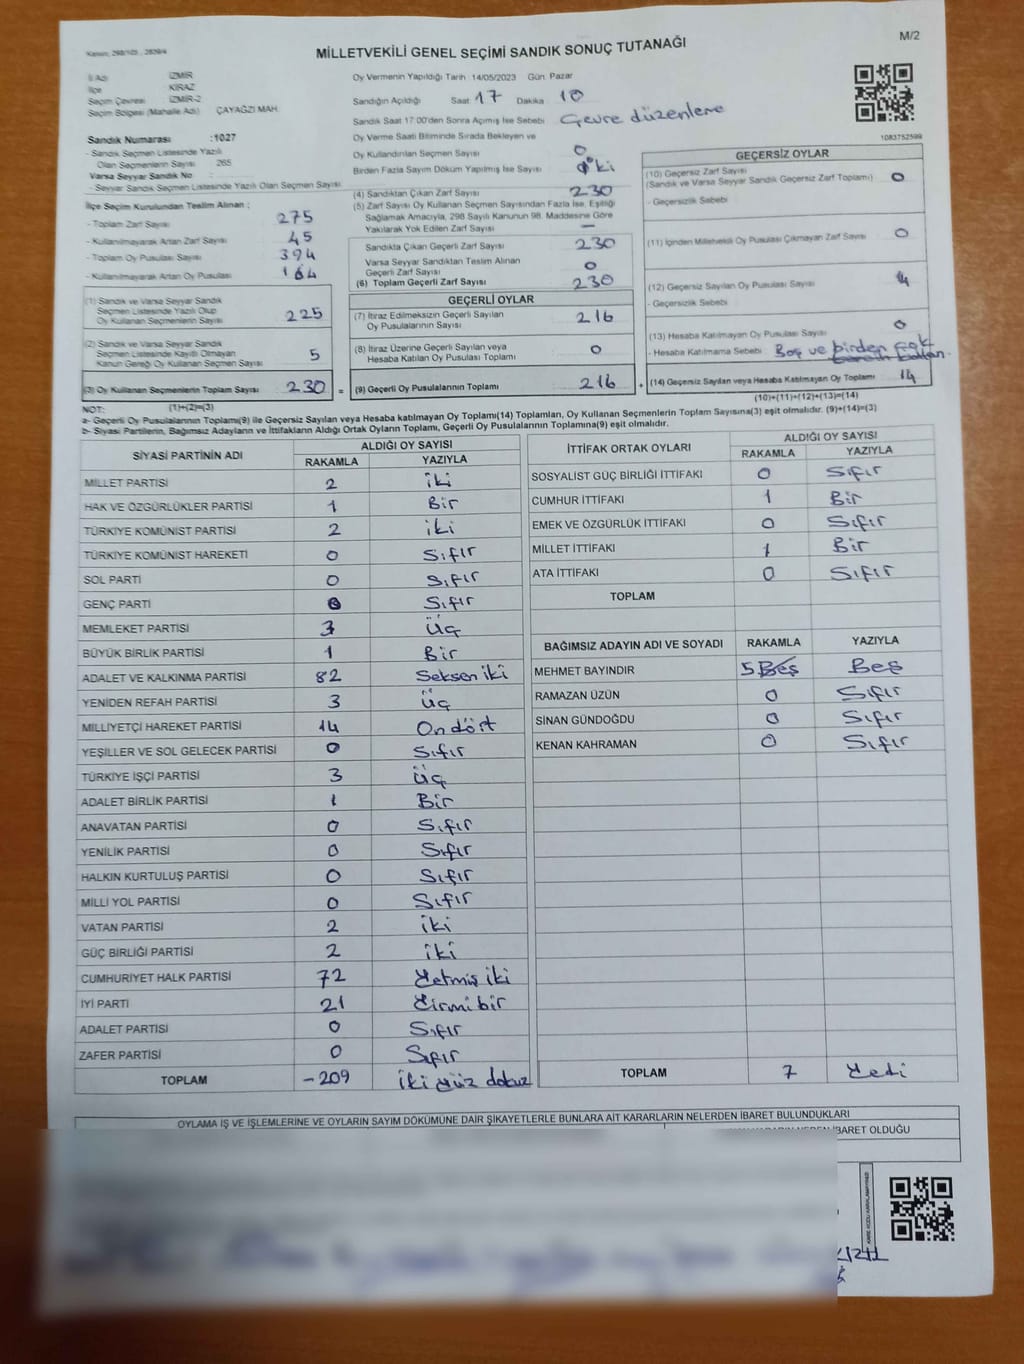 Kanun; 298/105 , 2839/4
M/2
MİLLETVEKİLİ GENEL SEÇİMİ SANDIK SONUÇ TUTANAĞI
İl Adı İZMİR
İlçe KİRAZ
Seçim Çevresi İZMİR-2
Seçim Bölgesi (Mahalle Adı) ÇAYAĞZI MAH.
Sandık Numarası :1027
- Sandık Seçmen Listesinde Yazılı
Olan Seçmenlerin Sayısı 265
Varsa Seyyar Sandık No
- Seyyar Sandık Seçmen Listesinde Yazılı Olan Seçmen Sayısı
İlçe Seçim Kurulundan Teslim Alınan ;
- Toplam Zarf Sayısı 275
- Kullanılmayarak Artan Zarf Sayısı 45
- Toplam Oy Pusulası Sayısı 394
- Kullanılmayarak Artan Oy Pusulası 164
(1) Sandık ve Varsa Seyyar Sandık
Seçmen Listesinde Yazılı Olup
Oy Kullanan Seçmenlerin Sayısı 225
(2) Sandık ve Varsa Seyyar Sandık
Seçmen Listesinde Kayıtlı Olmayan
Kanun Gereği Oy Kullanan Seçmen Sayısı 5
(3) Oy Kullanan Seçmenlerin Toplam Sayısı 230 =
Oy Vermenin Yapıldığı Tarih 14/05/2023 Gün Pazar
Sandığın Açıldığı Saat 17 Dakika 10
Sandık Saat 17:00'den Sonra Açımış İse Sebebi Çevre düzenleme
Oy Verme Saati Bitiminde Sırada Bekleyen ve
Oy Kullandırılan Seçmen Sayısı 0
Birden Fazla Sayım Döküm Yapılmış İse Sayısı iki
(4) Sandıktan Çıkan Zarf Sayısı 230
(5) Zarf Sayısı Oy Kullanan Seçmen Sayısından Fazla İse, Eşitliği
Sağlamak Amacıyla, 298 Sayılı Kanunun 98. Maddesine Göre
Yakılarak Yok Edilen Zarf Sayısı —
Sandıkta Çıkan Geçerli Zarf Sayısı 230
Varsa Seyyar Sandıktan Teslim Alınan
Geçerli Zarf Sayısı 0
(6) Toplam Geçerli Zarf Sayısı 230
GEÇERLİ OYLAR
(7) İtiraz Edilmeksizin Geçerli Sayılan
Oy Pusulalarının Sayısı 216
(8) İtiraz Üzerine Geçerli Sayılan veya
Hesaba Katılan Oy Pusulası Toplamı 0
(9) Geçerli Oy Pusulalarının Toplamı 216 +
1083752599
GEÇERSİZ OYLAR
(10) Geçersiz Zarf Sayısı
(Sandık ve Varsa Seyyar Sandık Geçersiz Zarf Toplamı) 0
- Geçersizlik Sebebi
(11) İçinden Milletvekili Oy Pusulası Çıkmayan Zarf Sayısı 0
(12) Geçersiz Sayılan Oy Pusulası Sayısı
- Geçersizlik Sebebi
(13) Hesaba Katılmayan Oy Pusulası Sayısı 0
- Hesaba Katılmama Sebebi Boş ve birden çok
(14) Geçersiz Sayılan veya Hesaba Katılmayan Oy Toplamı 14
(10)+(11)+(12)+(13)=(14)
NOT: (1)+(2)=(3)
a- Geçerli Oy Pusulalarının Toplamı(9) ile Geçersiz Sayılan veya Hesaba katılmayan Oy Toplamı(14) Toplamları, Oy Kullanan Seçmenlerin Toplam Sayısına(3) eşit olmalıdır. (9)+(14)=(3)
b- Siyasi Partilerin, Bağımsız Adayların ve İttifakların Aldığı Ortak Oyların Toplamı, Geçerli Oy Pusulalarının Toplamına(9) eşit olmalıdır.
SİYASİ PARTİNİN ADI ALDIĞI OY SAYISI
RAKAMLA YAZIYLA
MİLLET PARTİSİ 2 iki
HAK VE ÖZGÜRLÜKLER PARTİSİ 1 Bir
TÜRKİYE KOMÜNİST PARTİSİ 2 iki
TÜRKİYE KOMÜNİST HAREKETİ 0 Sıfır
SOL PARTİ 0 Sıfır
GENÇ PARTİ 0 Sıfır
MEMLEKET PARTİSİ 3 Üç
BÜYÜK BİRLİK PARTİSİ 1 Bir
ADALET VE KALKINMA PARTİSİ 82 Seksen iki
YENİDEN REFAH PARTİSİ 3 Üç
MİLLİYETÇİ HAREKET PARTİSİ 14 On dört
YEŞİLLER VE SOL GELECEK PARTİSİ 0 Sıfır
TÜRKİYE İŞÇİ PARTİSİ 3 Üç
ADALET BİRLİK PARTİSİ 1 Bir
ANAVATAN PARTİSİ 0 Sıfır
YENİLİK PARTİSİ 0 Sıfır
HALKIN KURTULUŞ PARTİSİ 0 Sıfır
MİLLİ YOL PARTİSİ 0 Sıfır
VATAN PARTİSİ 2 iki
GÜÇ BİRLİĞİ PARTİSİ 2 iki
CUMHURİYET HALK PARTİSİ 72 Yetmiş iki
İYİ PARTİ 21 Yirmi bir
ADALET PARTİSİ 0 Sıfır
ZAFER PARTİSİ 0 Sıfır
TOPLAM -209 iki yüz dokuz
İTTİFAK ORTAK OYLARI ALDIĞI OY SAYISI
RAKAMLA YAZIYLA
SOSYALİST GÜÇ BİRLİĞİ İTTİFAKI 0 Sıfır
CUMHUR İTTİFAKI 1 Bir
EMEK VE ÖZGÜRLÜK İTTİFAKI 0 Sıfır
MİLLET İTTİFAKI 1 Bir
ATA İTTİFAKI 0 Sıfır
TOPLAM
BAĞIMSIZ ADAYIN ADI VE SOYADI RAKAMLA YAZIYLA
MEHMET BAYINDIR 5 Beş Beş
RAMAZAN ÜZÜN 0 Sıfır
SİNAN GÜNDOĞDU 0 Sıfır
KENAN KAHRAMAN 0 Sıfır
TOPLAM 7 Yedi
OYLAMA İŞ VE İŞLEMLERİNE VE OYLARIN SAYIM DÖKÜMÜNE DAİR ŞİKAYETLERLE BUNLARA AİT KARARLARIN NELERDEN İBARET BULUNDUKLARI
İBARET OLDUĞU